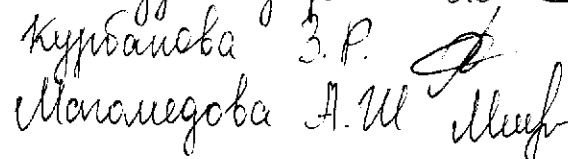 Курбанова З. Р.
Магомедова А. Ш